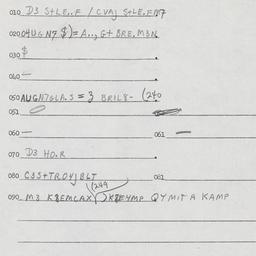 010 D3 S+LE..F / CVAJ S+LE.F
020 04UGN7 $)=A..,G+BRE,M3N
030 $
040 —
050 AUGN7GLA.S = 3 BRIL8- (240
051
060 — 061 —
070 D3 HO.R
080 CSS+TRO4JBLT 081
(249
090 M3 K8EMCAX K8E4MP QYMITA KAMP